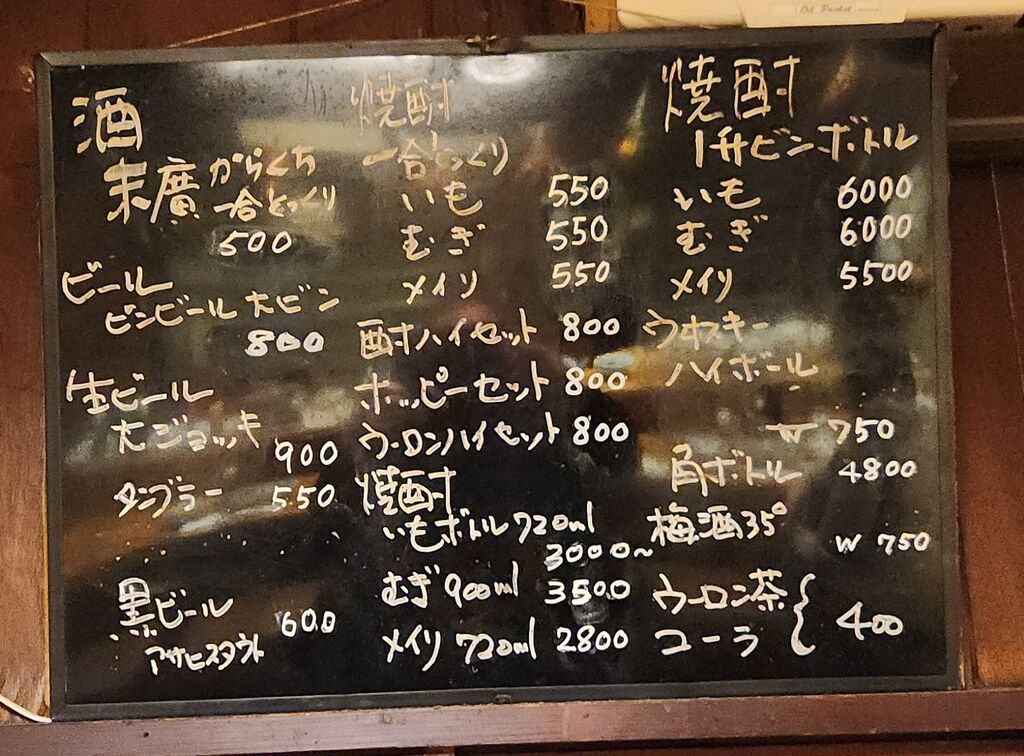 酒
末廣 からくち
一合とっくり
500
ビール
ビンビール 大ビン
800
生ビール
大ジョッキ
900
タンブラー 550
黒ビール
600
アサヒスタウト
焼酎
一合とっくり
いも 550
むぎ 550
メイリ 550
酎ハイセット 800
ホッピーセット 800
ウーロンハイセット 800
焼酎
いもボトル 720ml
3000~
むぎ 900ml 3500
メイリ 720ml 2800
焼酎
1升ビンボトル
いも 6000
むぎ 6000
メイリ 5500
ウヰスキー
ハイボール
W 750
角ボトル 4800
梅酒35°
W 750
ウーロン茶
コーラ
400